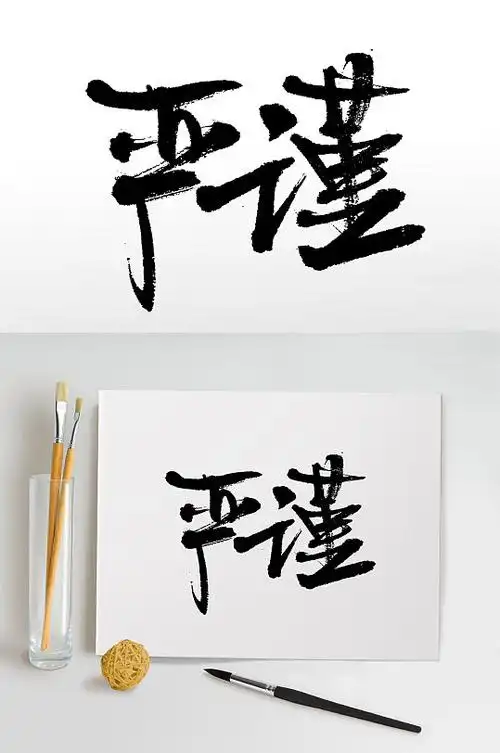 严谨
严谨